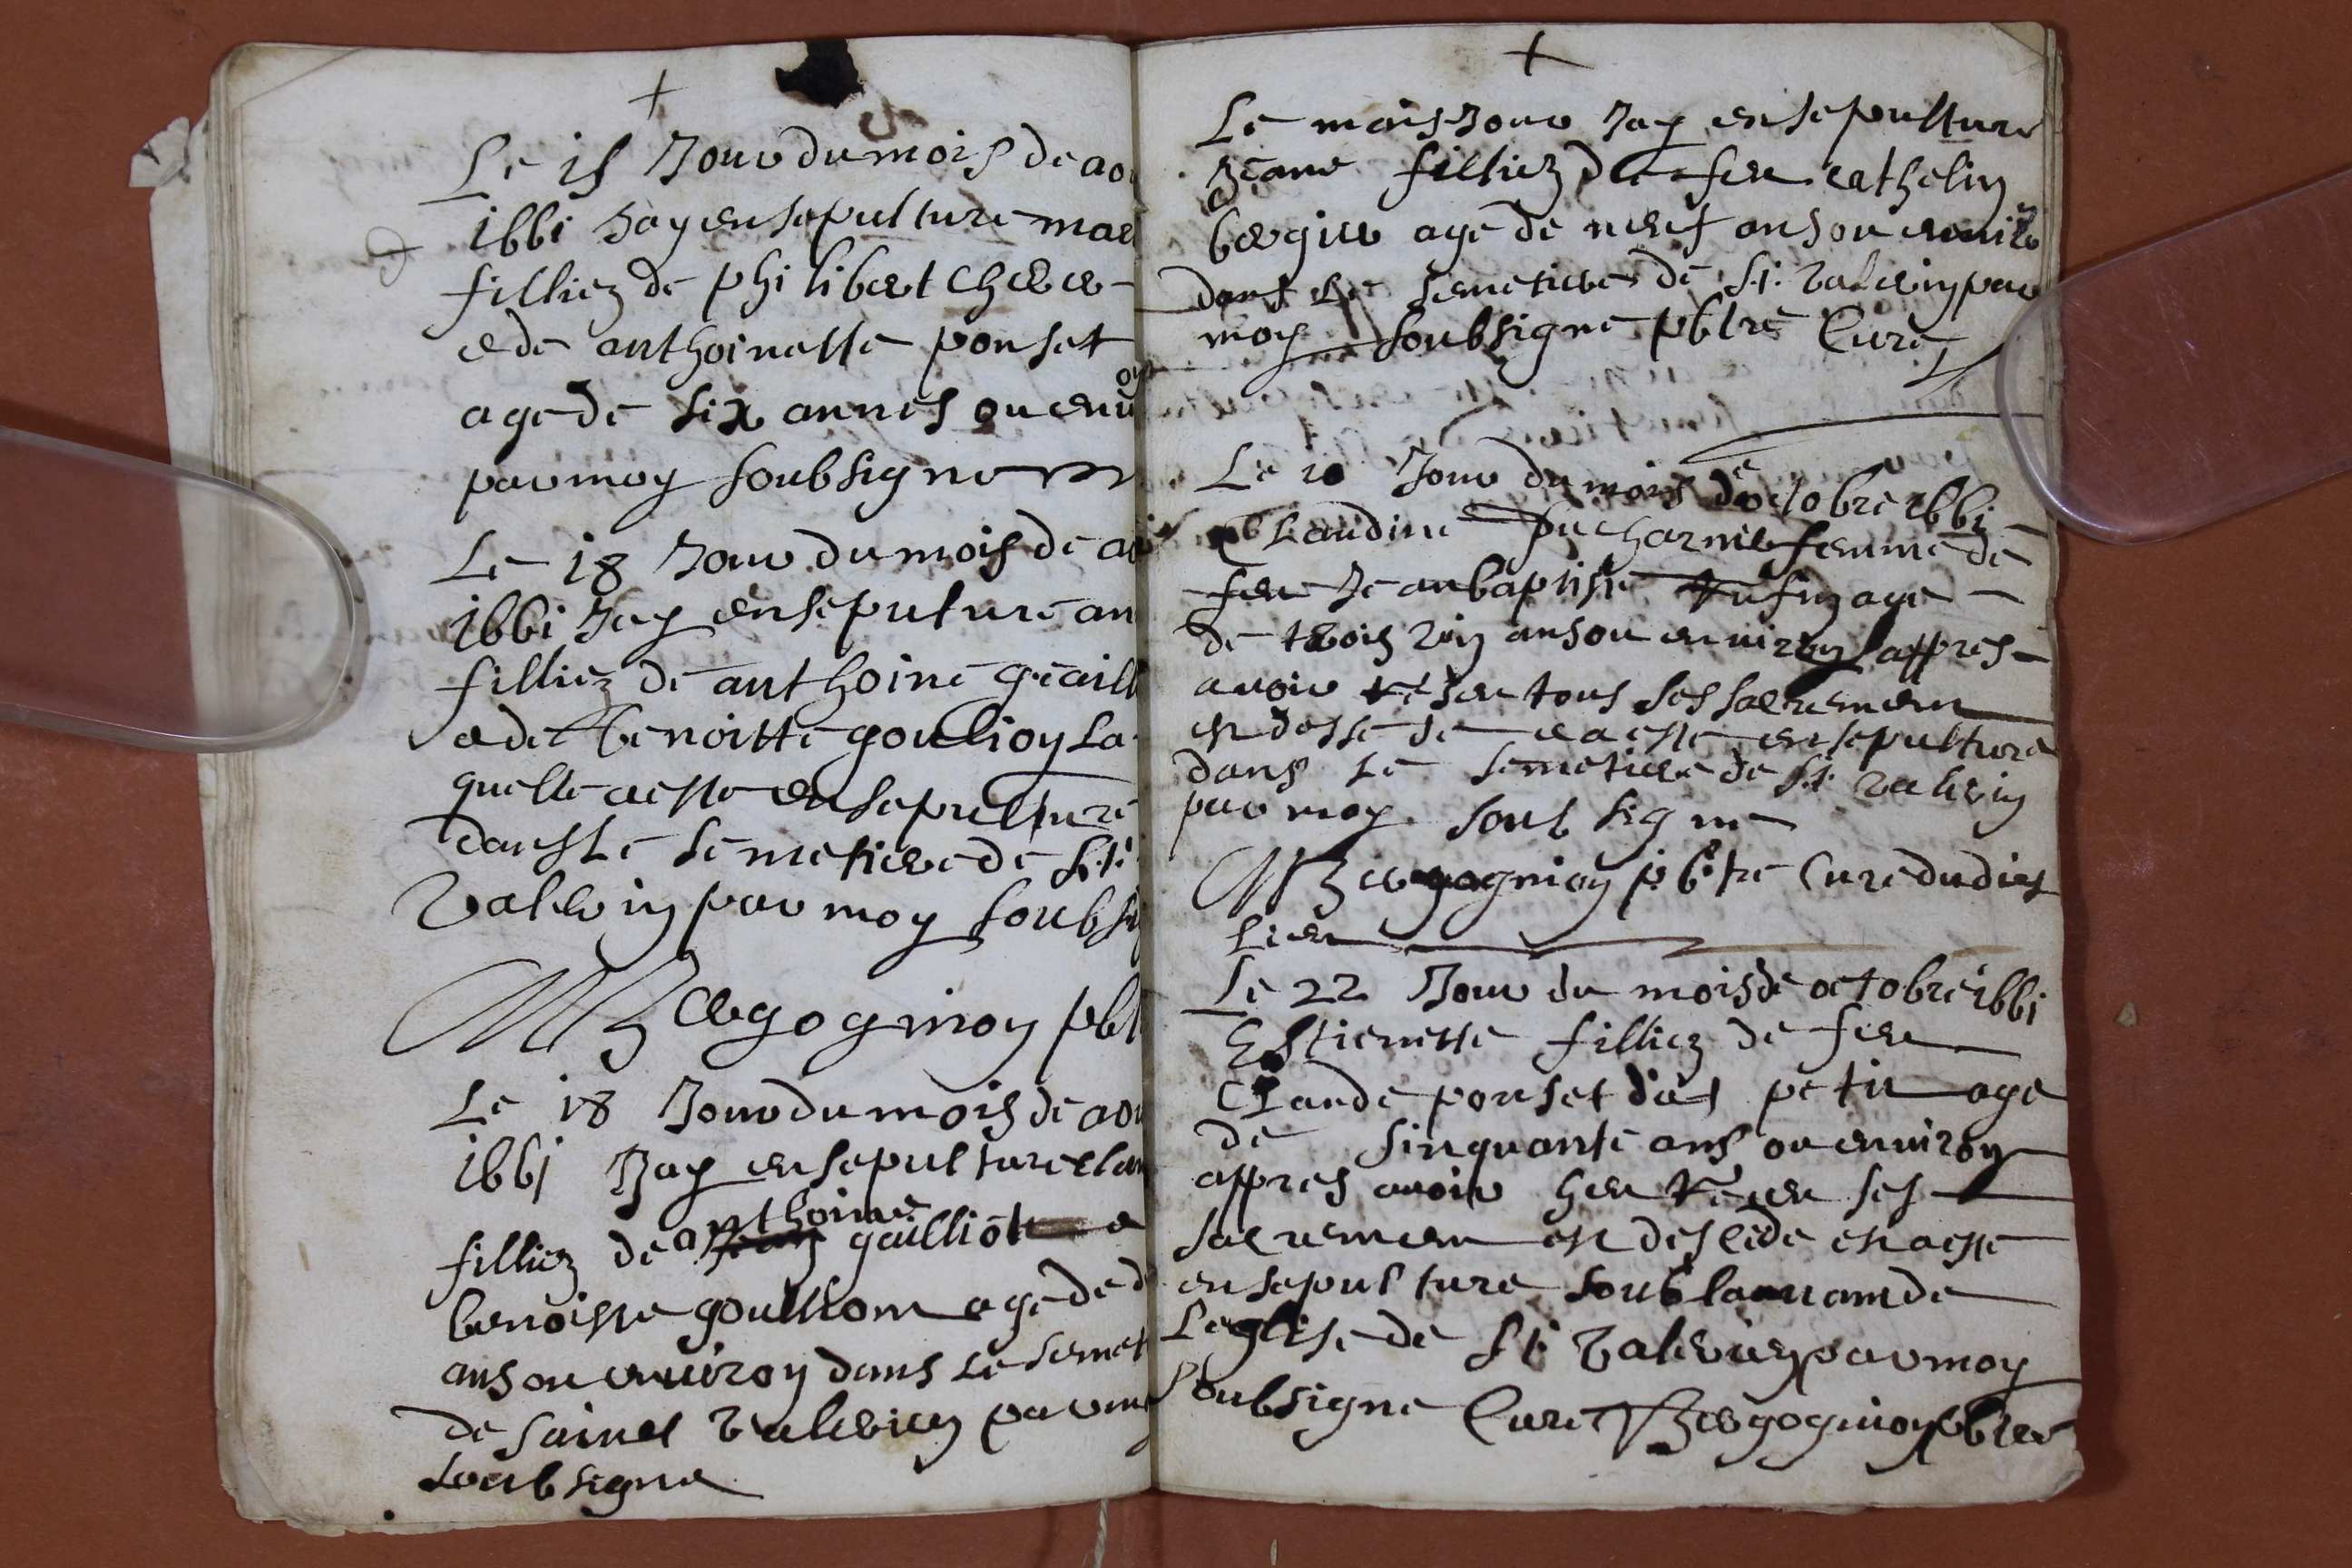 Le 15 Jour du mois de aou
1661 Jay ensepulture mar
filliez de philibert Cherer
e de anthoinette ponset
age de six annes ou envi
par moy soubsigne
Le 18 Jour du mois de aou
1661 Jay enseputure an
filliez de anthoine geaill
e de benoitte goulioy la
quelle a este ensepulture
dans le semetiere de St
Valerin par moy soubsi
Bergognioy pbt
Le 18 Jour du mois de aou
1661 Jay ensepulture clau
filliez de anthoine gailliott e
benoitte goulliom age de d
ans ou environ dans le semet
de sainct Valerien par mo
soubsigne
Le mois Jour Jay ensepulture
Jeane filliez de feu cathelin
bergier age de neuf ans ou environ
dans le semetiere de St Valerin par
moy soubsigne pbtre Cure
Le 10 Jour du mois de octobre 1661
Claudine femme de
feu Jean baptiste age
de trois vin ans ou environ appres
avoir reseu tous ses sacremen
est dessede e a este ensepulture
dans le semetiere de St Valerin
par moy soub signe
Bergognioy pbtre Cure dudict
lieu
Le 22 Jour du mois de octobre 1661
Estienette filliez de feu
Claude ponset dict petit age
de sinquante ans ou environ
appres avoir heu reseu ses
sacremen est desede est a este
ensepulture soub de
leglise de St Valerien par moy
soubsigne Cure Bergognioy pbtre